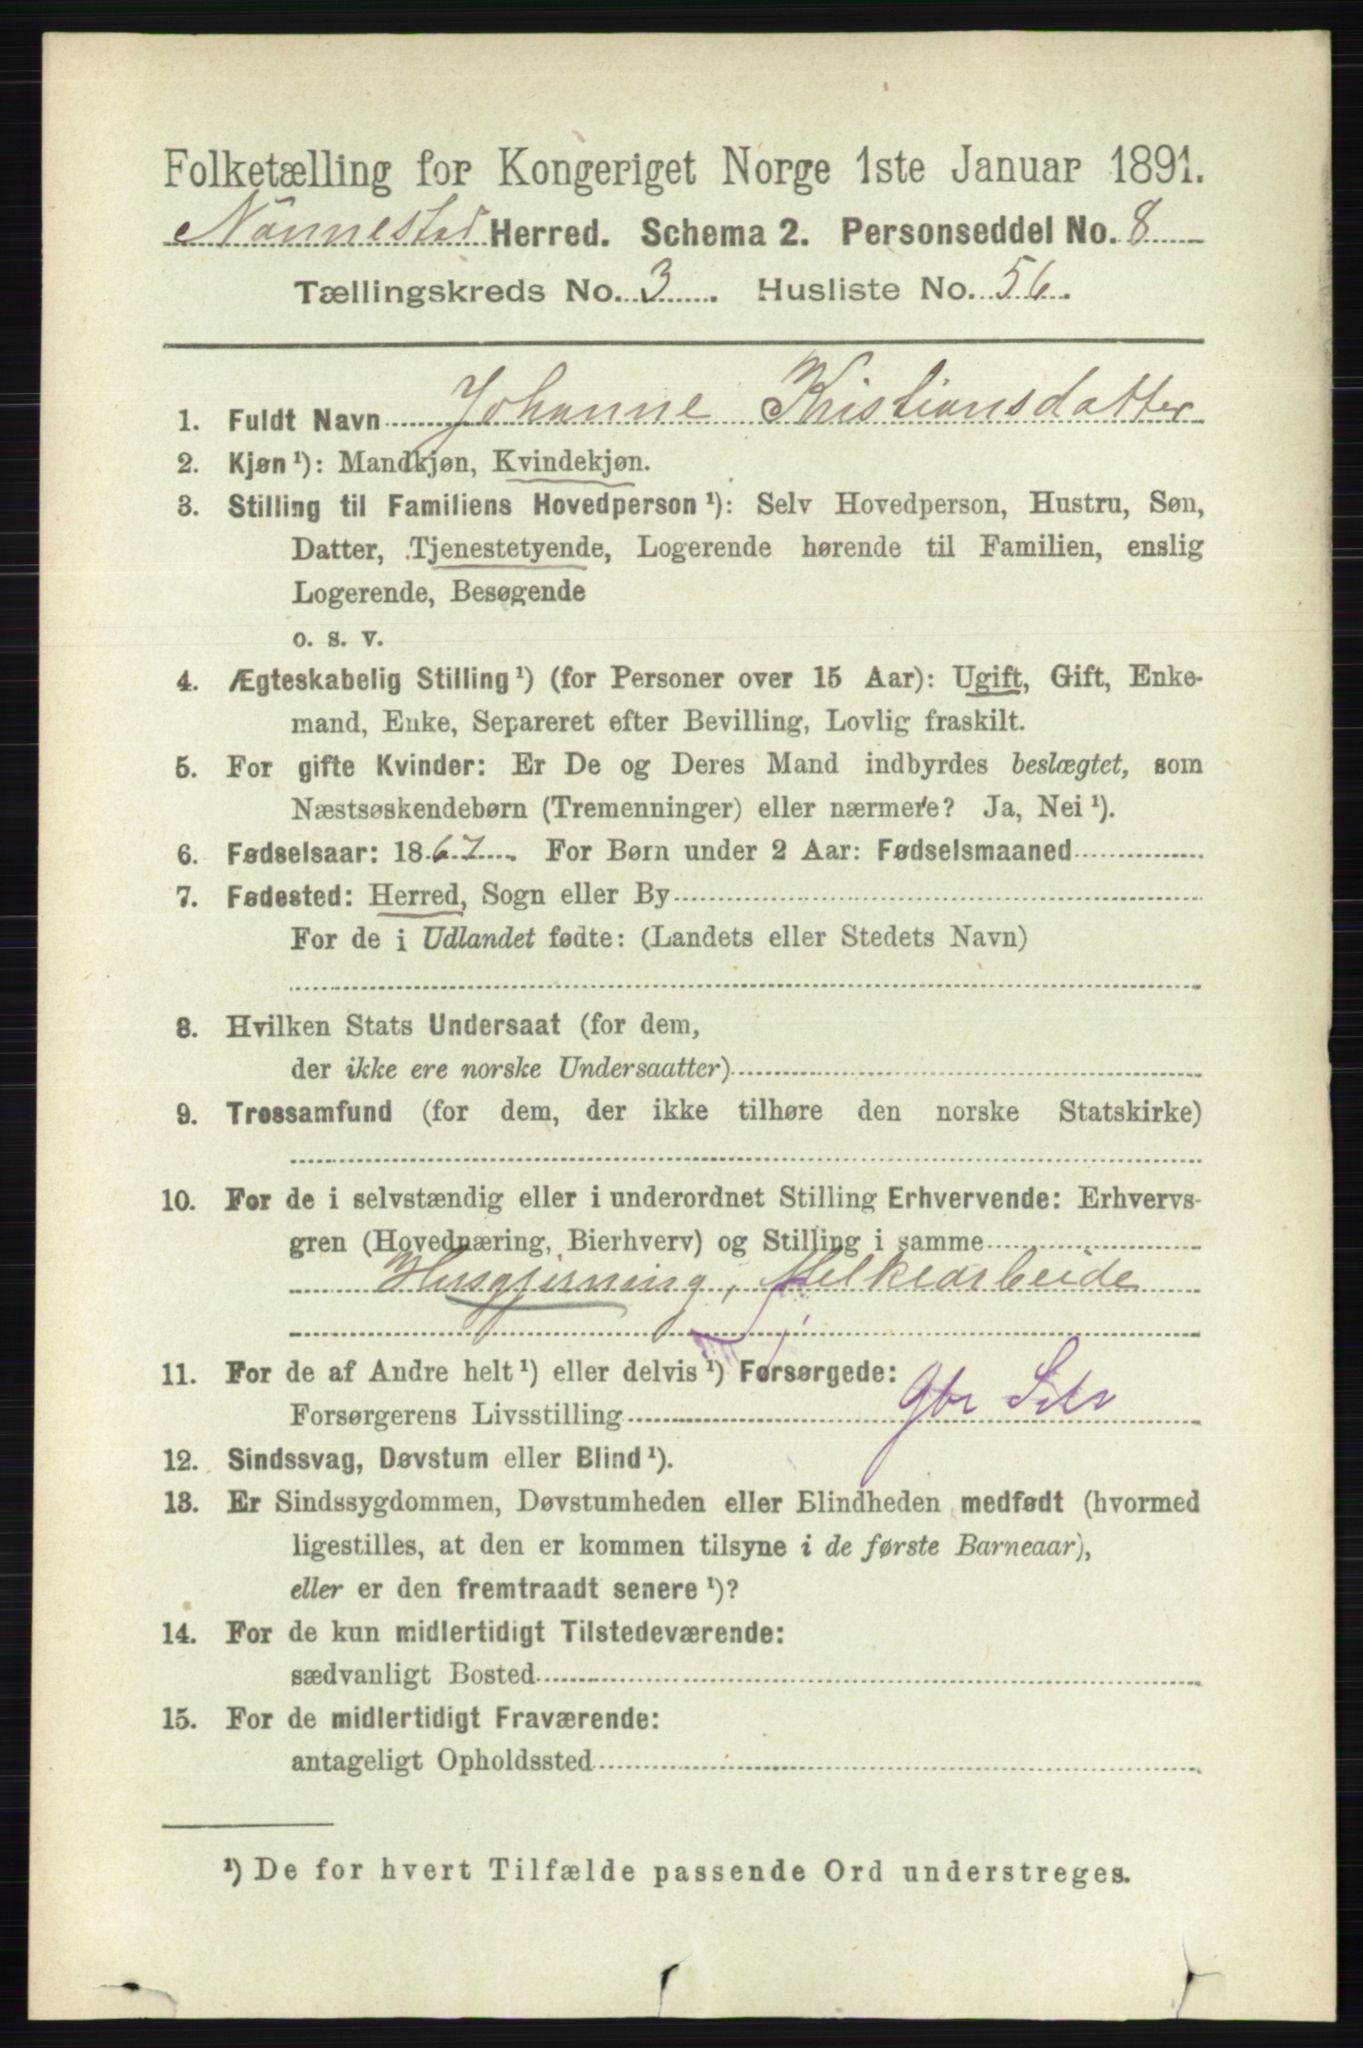 Folketælling for Kongeriget Norge 1ste Januar 1891.
Nannestad Herred. Schema 2. Personseddel No. 8
Tællingskreds No. 3. Husliste No. 56.
1. Fuldt Navn Johanne Kristiansdatter
2. Kjøn ¹): Mandkjøn, Kvindekjøn.
3. Stilling til Familiens Hovedperson ¹): Selv Hovedperson, Hustru, Søn,
Datter, Tjenestetyende, Logerende hørende til Familien, enslig
Logerende, Besøgende
o. s. v.
4. Ægteskabelig Stilling ¹) (for Personer over 15 Aar): Ugift, Gift, Enke-
mand, Enke, Separeret efter Bevilling, Lovlig fraskilt.
5. For gifte Kvinder: Er De og Deres Mand indbyrdes beslægtet, som
Næstsøskendebørn (Tremenninger) eller nærmere? Ja, Nei ¹).
6. Fødselsaar: 1867. For Børn under 2 Aar: Fødselsmaaned
7. Fødested: Herred, Sogn eller By
For de i Udlandet fødte: (Landets eller Stedets Navn)
8. Hvilken Stats Undersaat (for dem,
der ikke ere norske Undersaatter)
9. Trossamfund (for dem, der ikke tilhøre den norske Statskirke)
10. For de i selvstændig eller i underordnet Stilling Erhvervende: Erhvervs-
gren (Hovednæring, Bierhverv) og Stilling i samme
Husgjerning, Melkearbeide
11. For de af Andre helt ¹) eller delvis ¹) Forsørgede:
Forsørgerens Livsstilling Gbr
12. Sindssvag, Døvstum eller Blind ¹).
13. Er Sindssygdommen, Døvstumheden eller Blindheden medfødt (hvormed
ligestilles, at den er kommen tilsyne i de første Barneaar),
eller er den fremtraadt senere ¹)?
14. For de kun midlertidigt Tilstedeværende:
sædvanligt Bosted
15. For de midlertidigt Fraværende:
antageligt Opholdssted
¹) De for hvert Tilfælde passende Ord understreges.